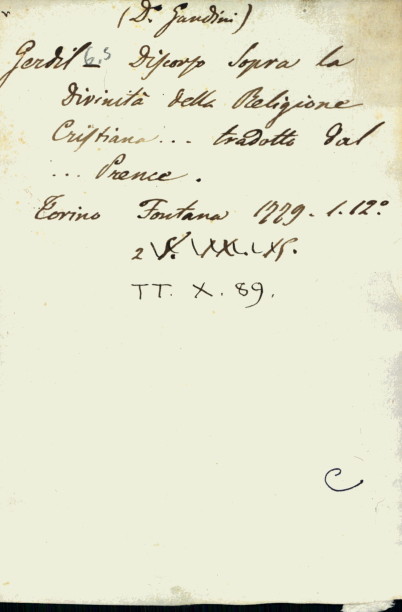 (Dº. Gandini)
Gerdil G. S. Discorso Sopra la
Divinità della Religione
Cristiana... tradotto dal
... Prence.
Torino Fontana 1779. 1. 12.º
TT. X. 89.
C